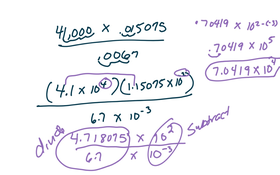 41,000 × .015075
.0067
(4.1 × 10⁴)(1.15075 × 10⁻²)
6.7 × 10⁻³
divide 4.718075 × 10² Subtract
6.7 × 10⁻³
.70419 × 10²⁻⁽⁻³⁾
.70419 × 10⁵
7.0419 × 10⁴